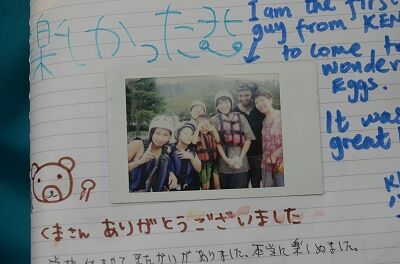 楽しかった
I am the first
guy from KEN
to come to
Wonder
Eggs.
It was
great
くまさん ありがとうございました
きたかいがありました。本当に楽しめました。